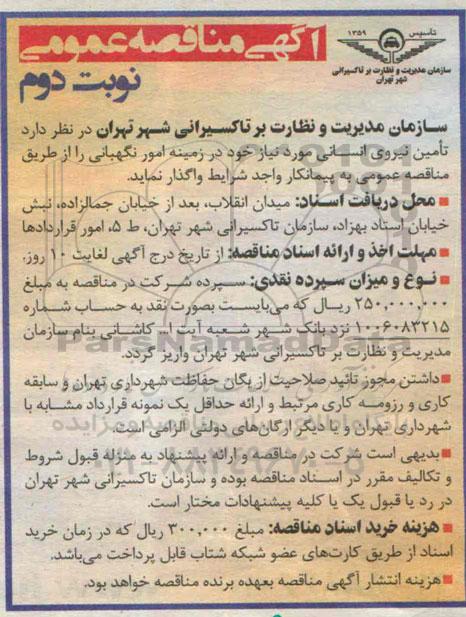 تاسیس ۱۳۵۹
سازمان مدیریت و نظارت بر تاکسیرانی
شهر تهران
آگهی مناقصه عمومی
نوبت دوم
سازمان مدیریت و نظارت بر تاکسیرانی شهر تهران در نظر دارد
تأمین نیروی انسانی مورد نیاز خود در زمینه امور نگهبانی را از طریق
مناقصه عمومی به پیمانکار واجد شرایط واگذار نماید.
■ محل دریافت اسناد: میدان انقلاب، بعد از خیابان جمالزاده، نبش
خیابان استاد بهزاد، سازمان تاکسیرانی شهر تهران، ط ۵، امور قراردادها
■ مهلت اخذ و ارائه اسناد مناقصه: از تاریخ درج آگهی لغایت ۱۰ روز.
■ نوع و میزان سپرده نقدی: سپرده شرکت در مناقصه به مبلغ
۲۵۰,۰۰۰,۰۰۰ ریال که می‌بایست بصورت نقد به حساب شماره
۱۰۰۶۰۸۳۲۱۵ نزد بانک شهر شعبه آیت ا... کاشانی بنام سازمان
مدیریت و نظارت بر تاکسیرانی شهر تهران واریز گردد.
■ داشتن مجوز تائید صلاحیت از یگان حفاظت شهرداری تهران و سابقه
کاری و رزومه کاری مرتبط و ارائه حداقل یک نمونه قرارداد مشابه با
شهرداری تهران و یا دیگر ارگان‌های دولتی الزامی است.
■ بدیهی است شرکت در مناقصه و ارائه پیشنهاد به منزله قبول شروط
و تکالیف مقرر در اسناد مناقصه بوده و سازمان تاکسیرانی شهر تهران
در رد یا قبول یک یا کلیه پیشنهادات مختار است.
■ هزینه خرید اسناد مناقصه: مبلغ ۳۰۰,۰۰۰ ریال که در زمان خرید
اسناد از طریق کارت‌های عضو شبکه شتاب قابل پرداخت می‌باشد.
■ هزینه انتشار آگهی مناقصه بعهده برنده مناقصه خواهد بود.
ParsNamadData